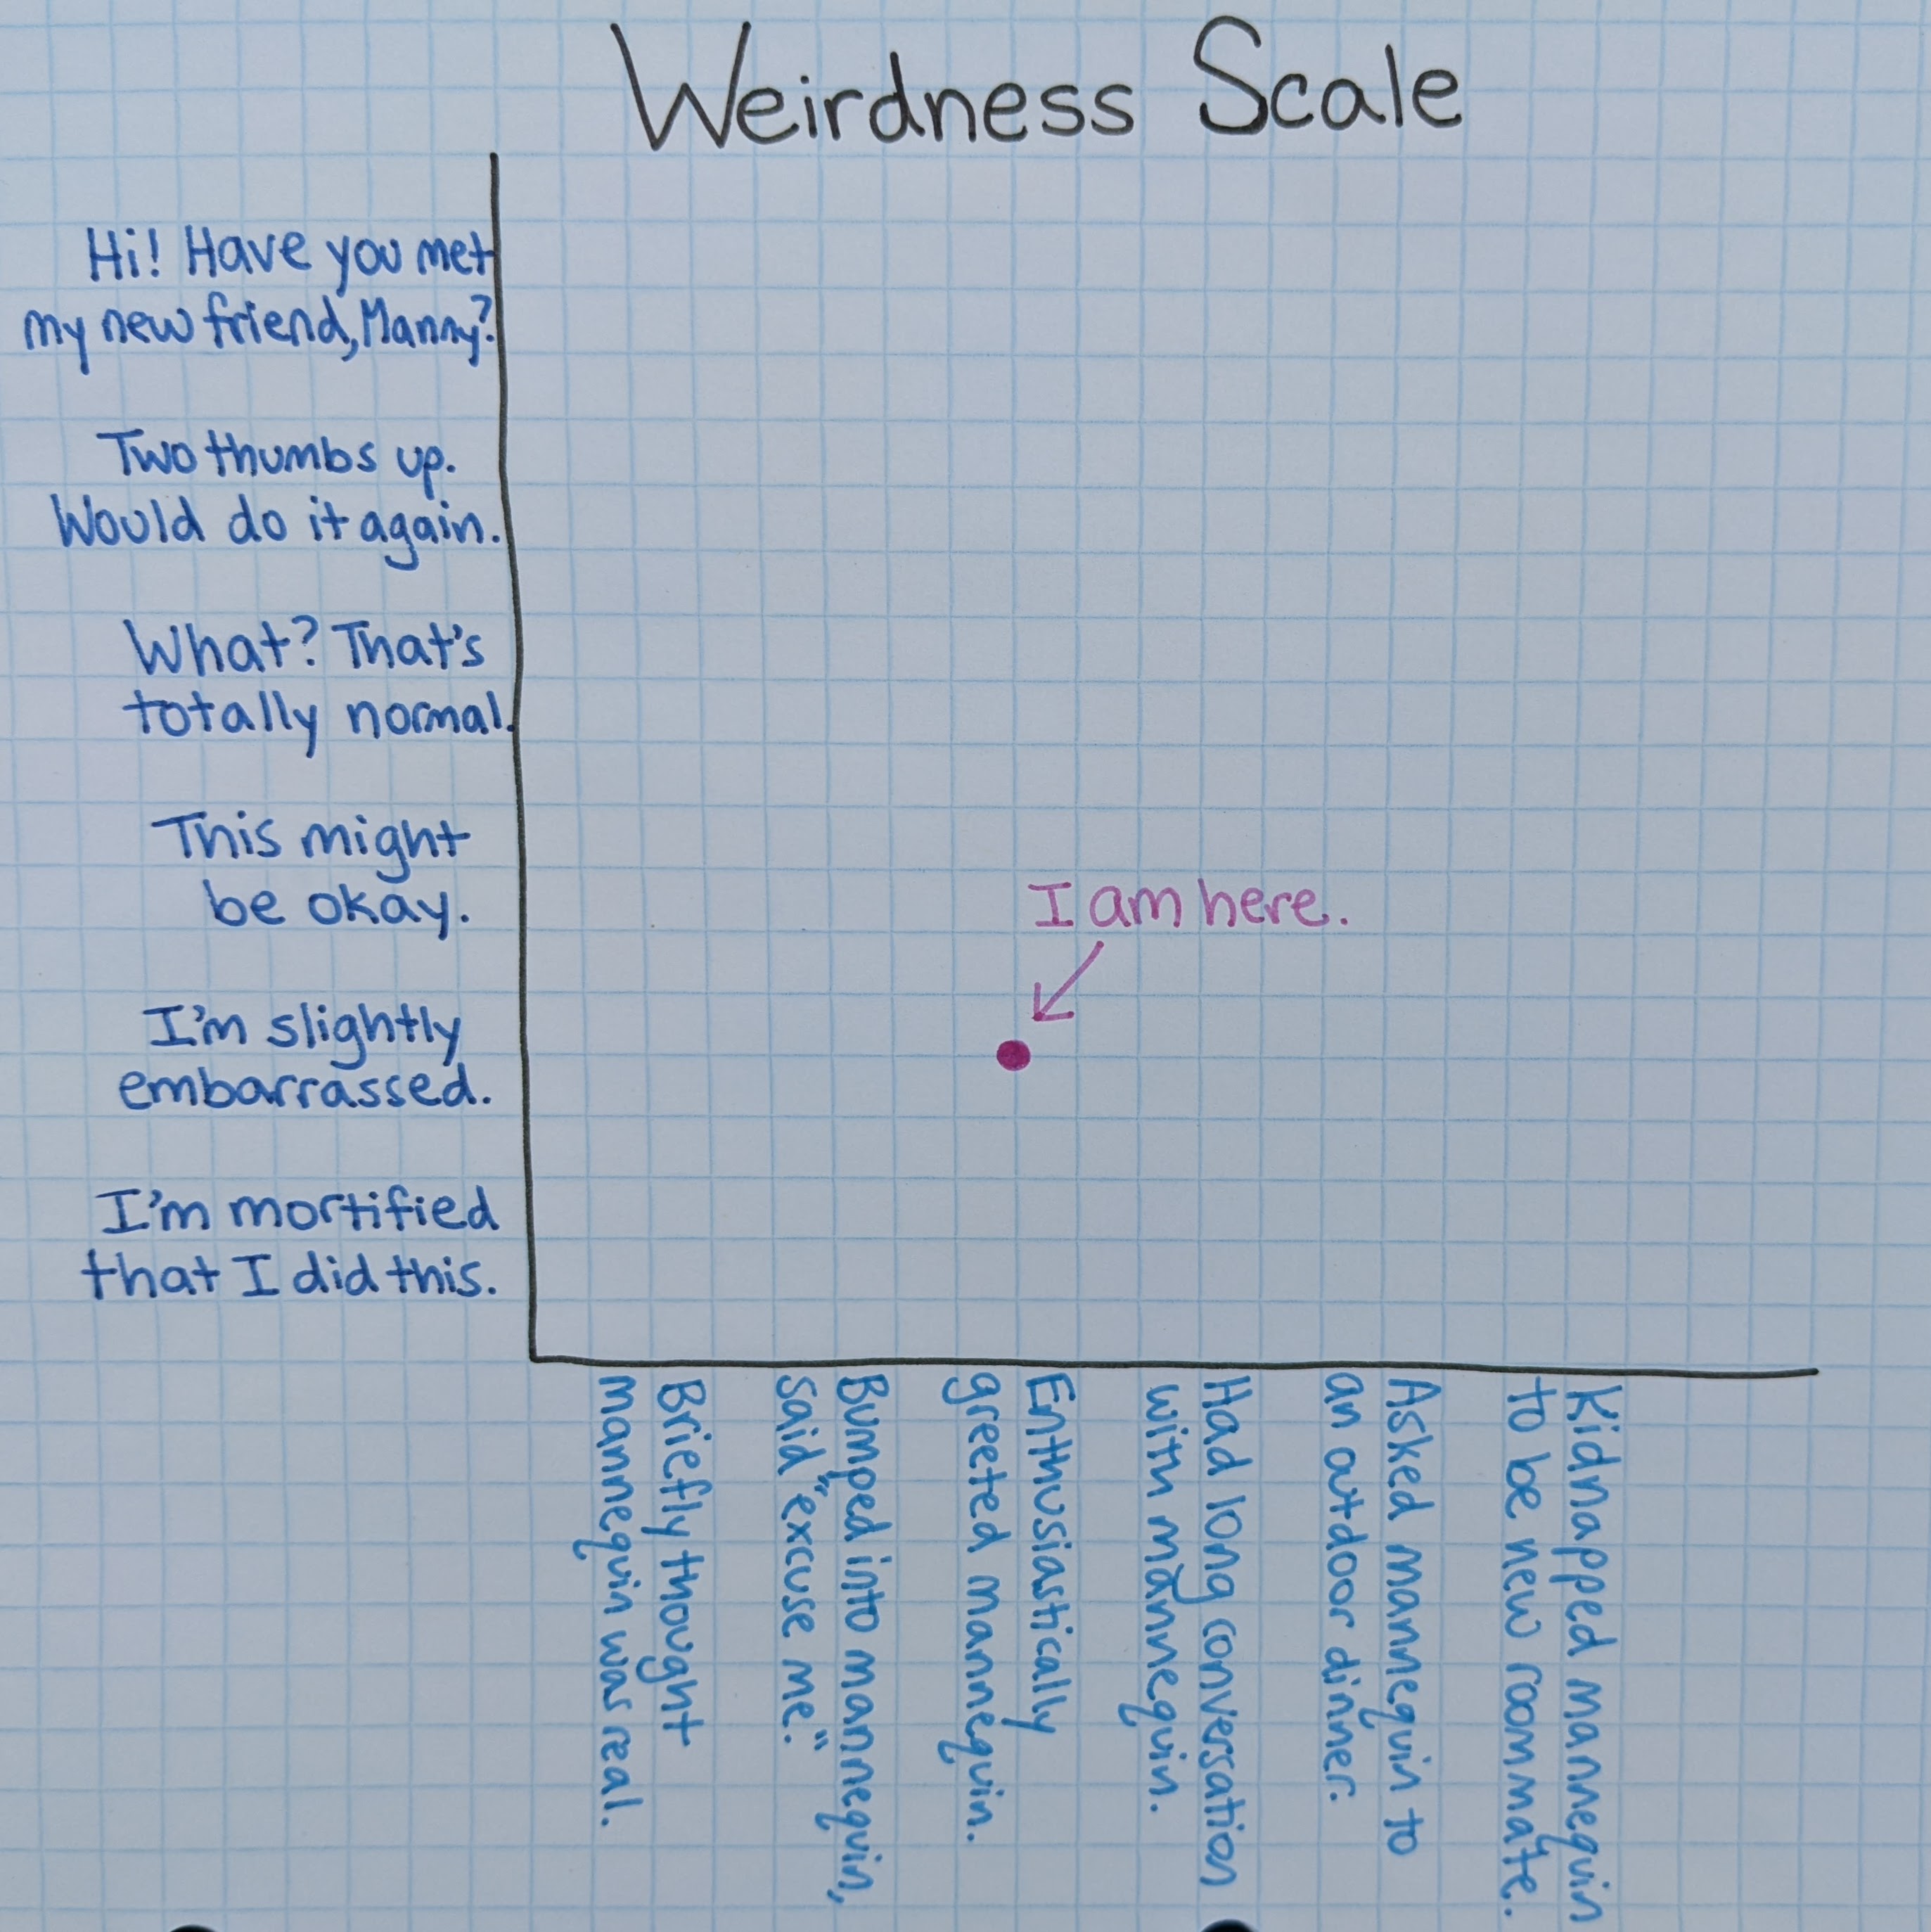 Weirdness Scale
Hi! Have you met
my new friend, Manny?
Two thumbs up.
Would do it again.
What? That's
totally normal.
This might
be okay.
I'm slightly
embarrassed.
I'm mortified
that I did this.
I am here.
Briefly thought
mannequin was real.
Bumped into mannequin,
said "excuse me."
Enthusiastically
greeted mannequin.
Had long conversation
with mannequin.
Asked mannequin to
an outdoor dinner.
Kidnapped mannequin
to be new roommate.